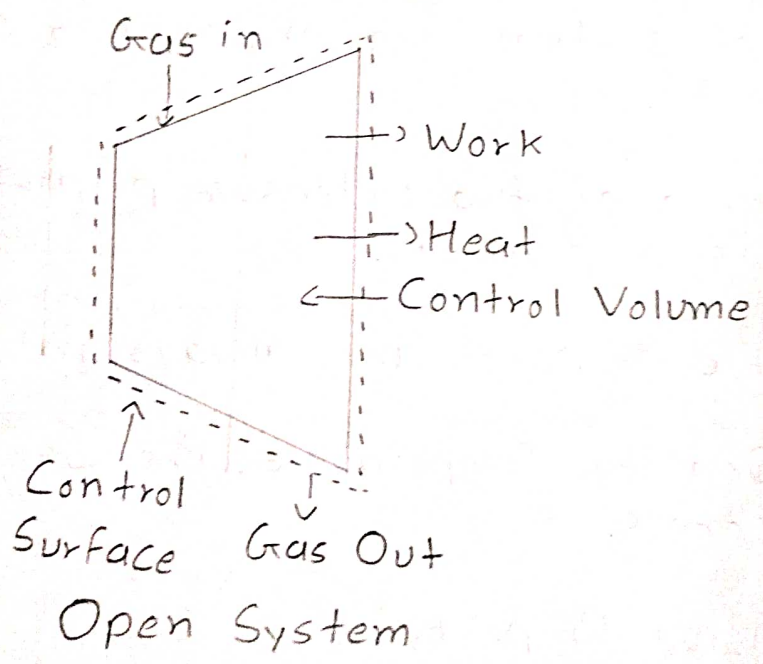 Gas in
Work
Heat
Control Volume
Control
Surface
Gas Out
Open System